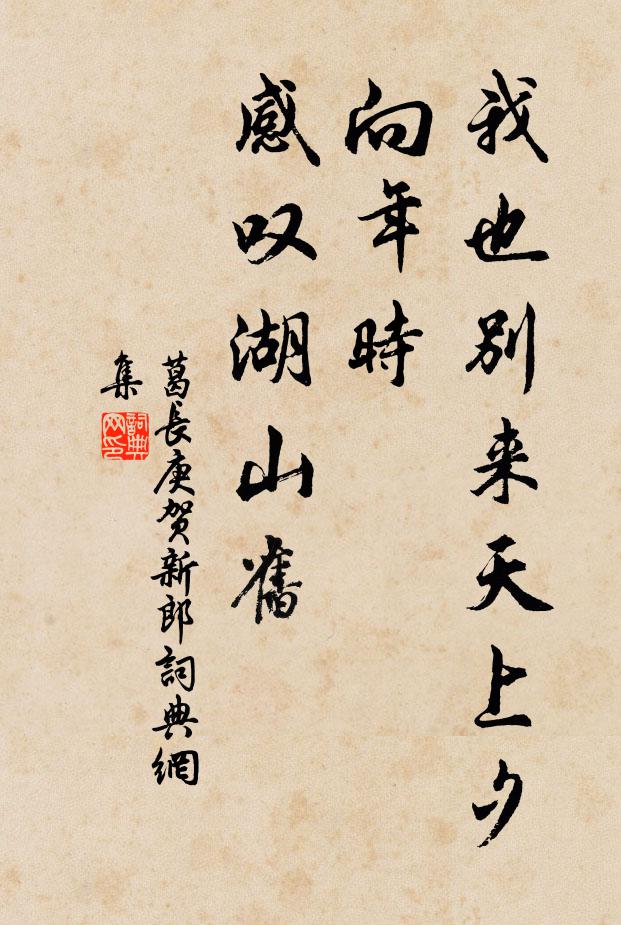 我也别来天上
向年時
感叹湖山舊
葛長庚贺新郎詞典網
集
詞典
网印